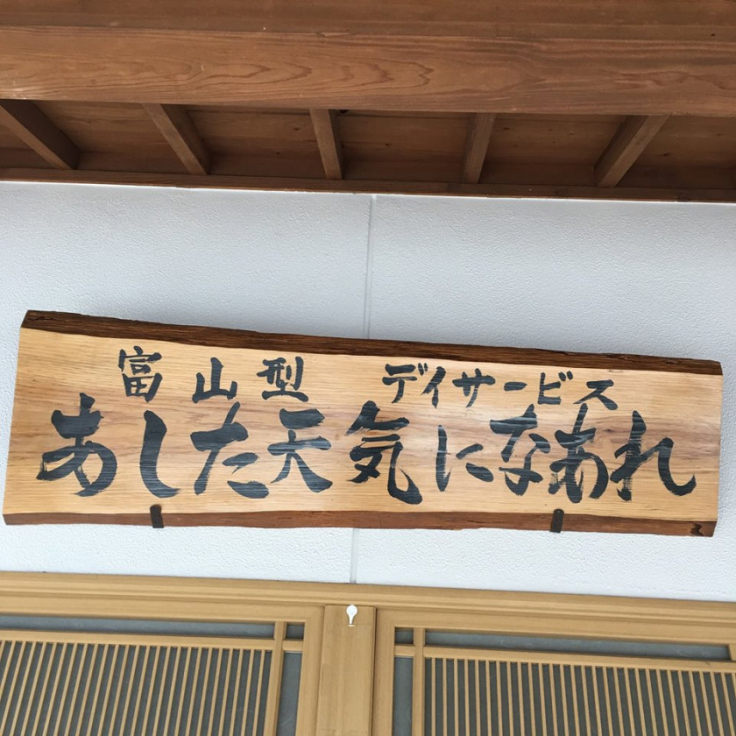 富山型 デイサービス
あした天気になあれ